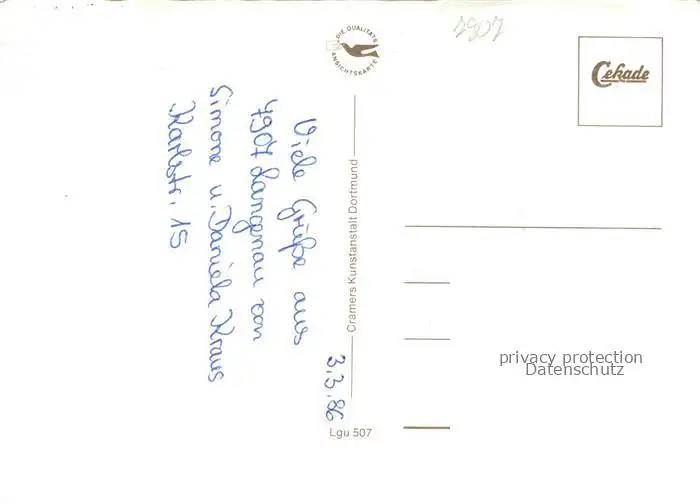 3.3.86
Viele Grüße aus
7907 Langenau von
Simone u. Daniela Kraus
Karlstr. 15
DIE QUALITÄTS
ANSICHTSKARTE
7907
Cekade
Cramers Kunstanstalt Dortmund
Lgu 507
privacy protection
Datenschutz